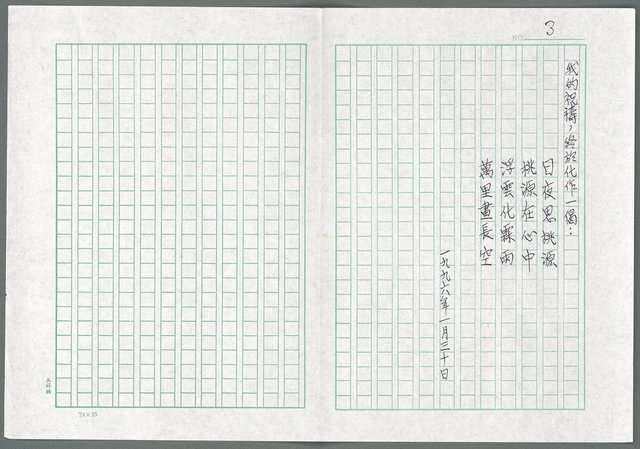 NO. 3
我的祝禱，終於化作一偈：
日夜思桃源
桃源在心中
浮雲化霖雨
萬里畫長空
一九九六年一月三十日
24×25